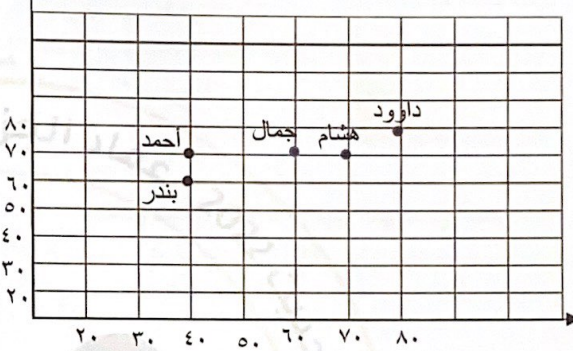 داوود
جمال هشام
أحمد
بندر
٨٠
٧٠
٦٠
٥٠
٤٠
٣٠
٢٠
٢٠ ٣٠ ٤٠ ٥٠ ٦٠ ٧٠ ٨٠